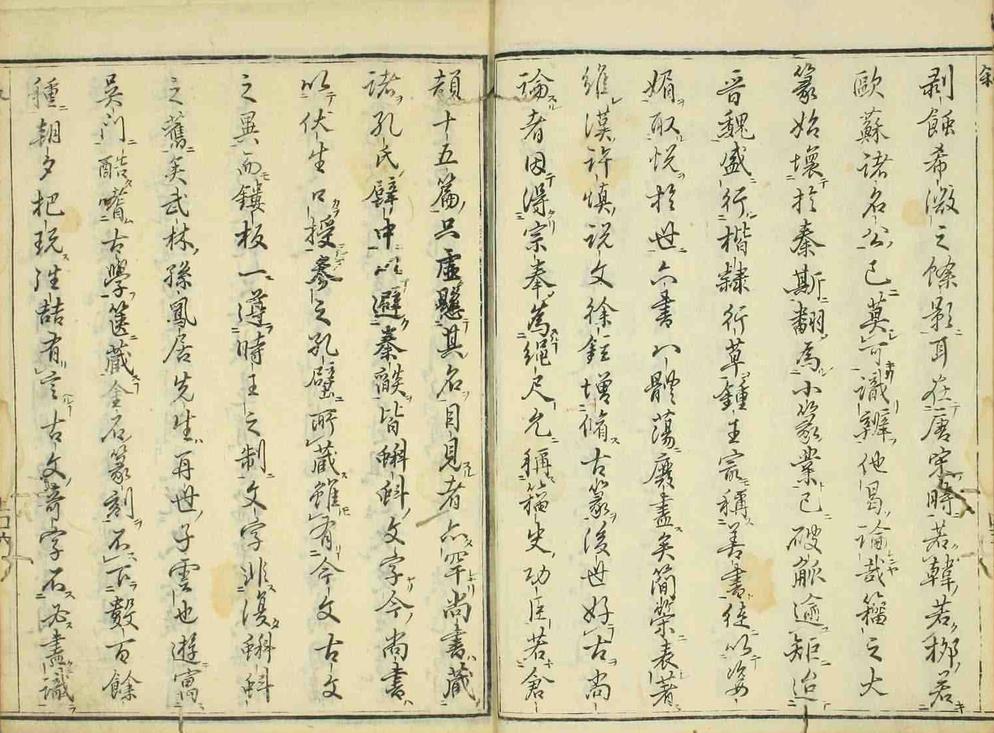 剥蝕希微之餘影耳在唐宋時若韓若柳若
歐蘇諸名公已莫可識辨他曷論哉籀之大
篆始壞於秦斯翻為小篆業已破觚逾矩迨
晋魏盛行楷隸行草鍾王家稱善書徒以姿
媚取悅於世六書八體蕩廢盡矣簡帙表著
維漢許慎說文徐鉉增脩古篆後世好古尚
論者因得宗奉為繩尺允稱籀史功臣若倉
頡十五篇只虛懸其名目見者亦罕尚書藏
諸孔氏壁中以避秦燄皆蝌蚪文字今尚書
以伏生口授參之孔壁所藏雖有今文古文
之異而鏤板一遵時王之制文字非復蝌蚪
之舊矣武林孫鳳居先生再世子雲也遊寓
吳門酷嗜古學篋藏金石篆刻不下數百餘
種朝夕把玩結有言古文奇字不必盡識